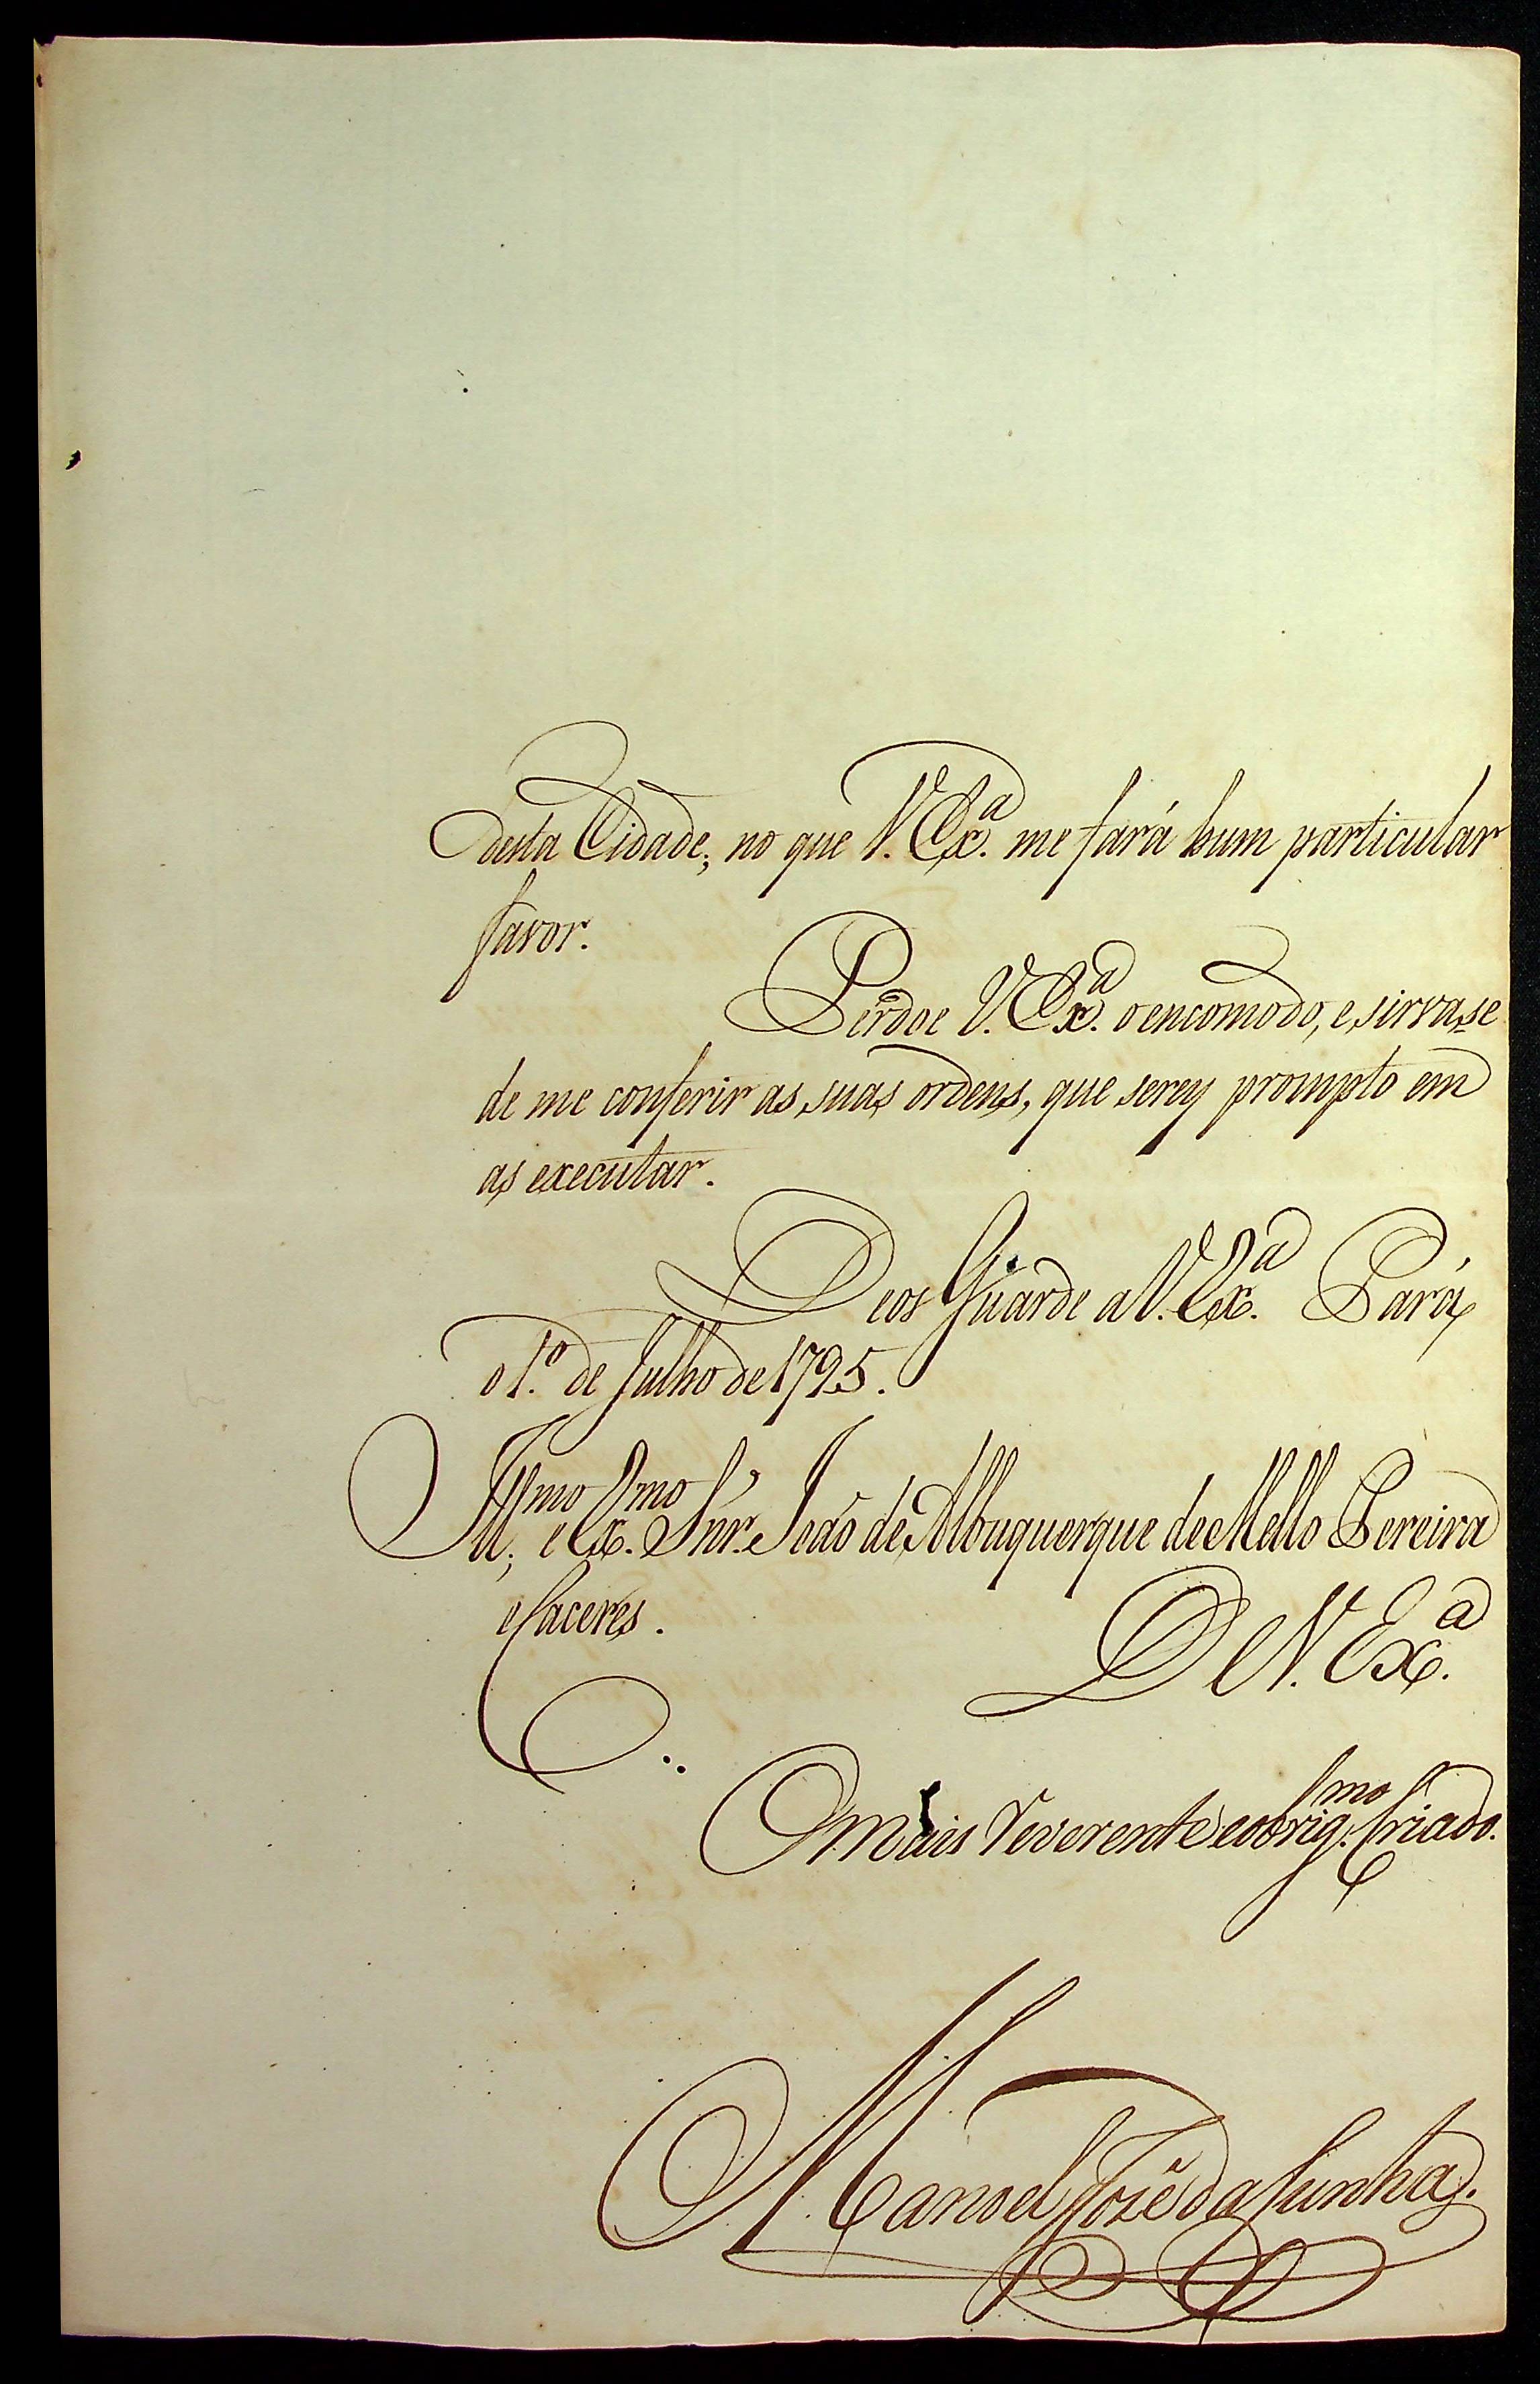 desta Cidade; no que V. Ex.ª me fará hum particular
favor.
Perdoe V. Ex.ª o encomodo, e sirva-se
de me conferir as suas ordens, que serey prompto em
as executar.
Deos Guarde a V. Ex.ª Pará
o 1.º de Julho de 1795.
Ill.mo e Ex.mo Snr. João de Albuquerque de Mello Pereira
e Caceres.
De V. Ex.ª
O mais reverente e obrig.mo Criado.
Manoel Jozê da Cunha.